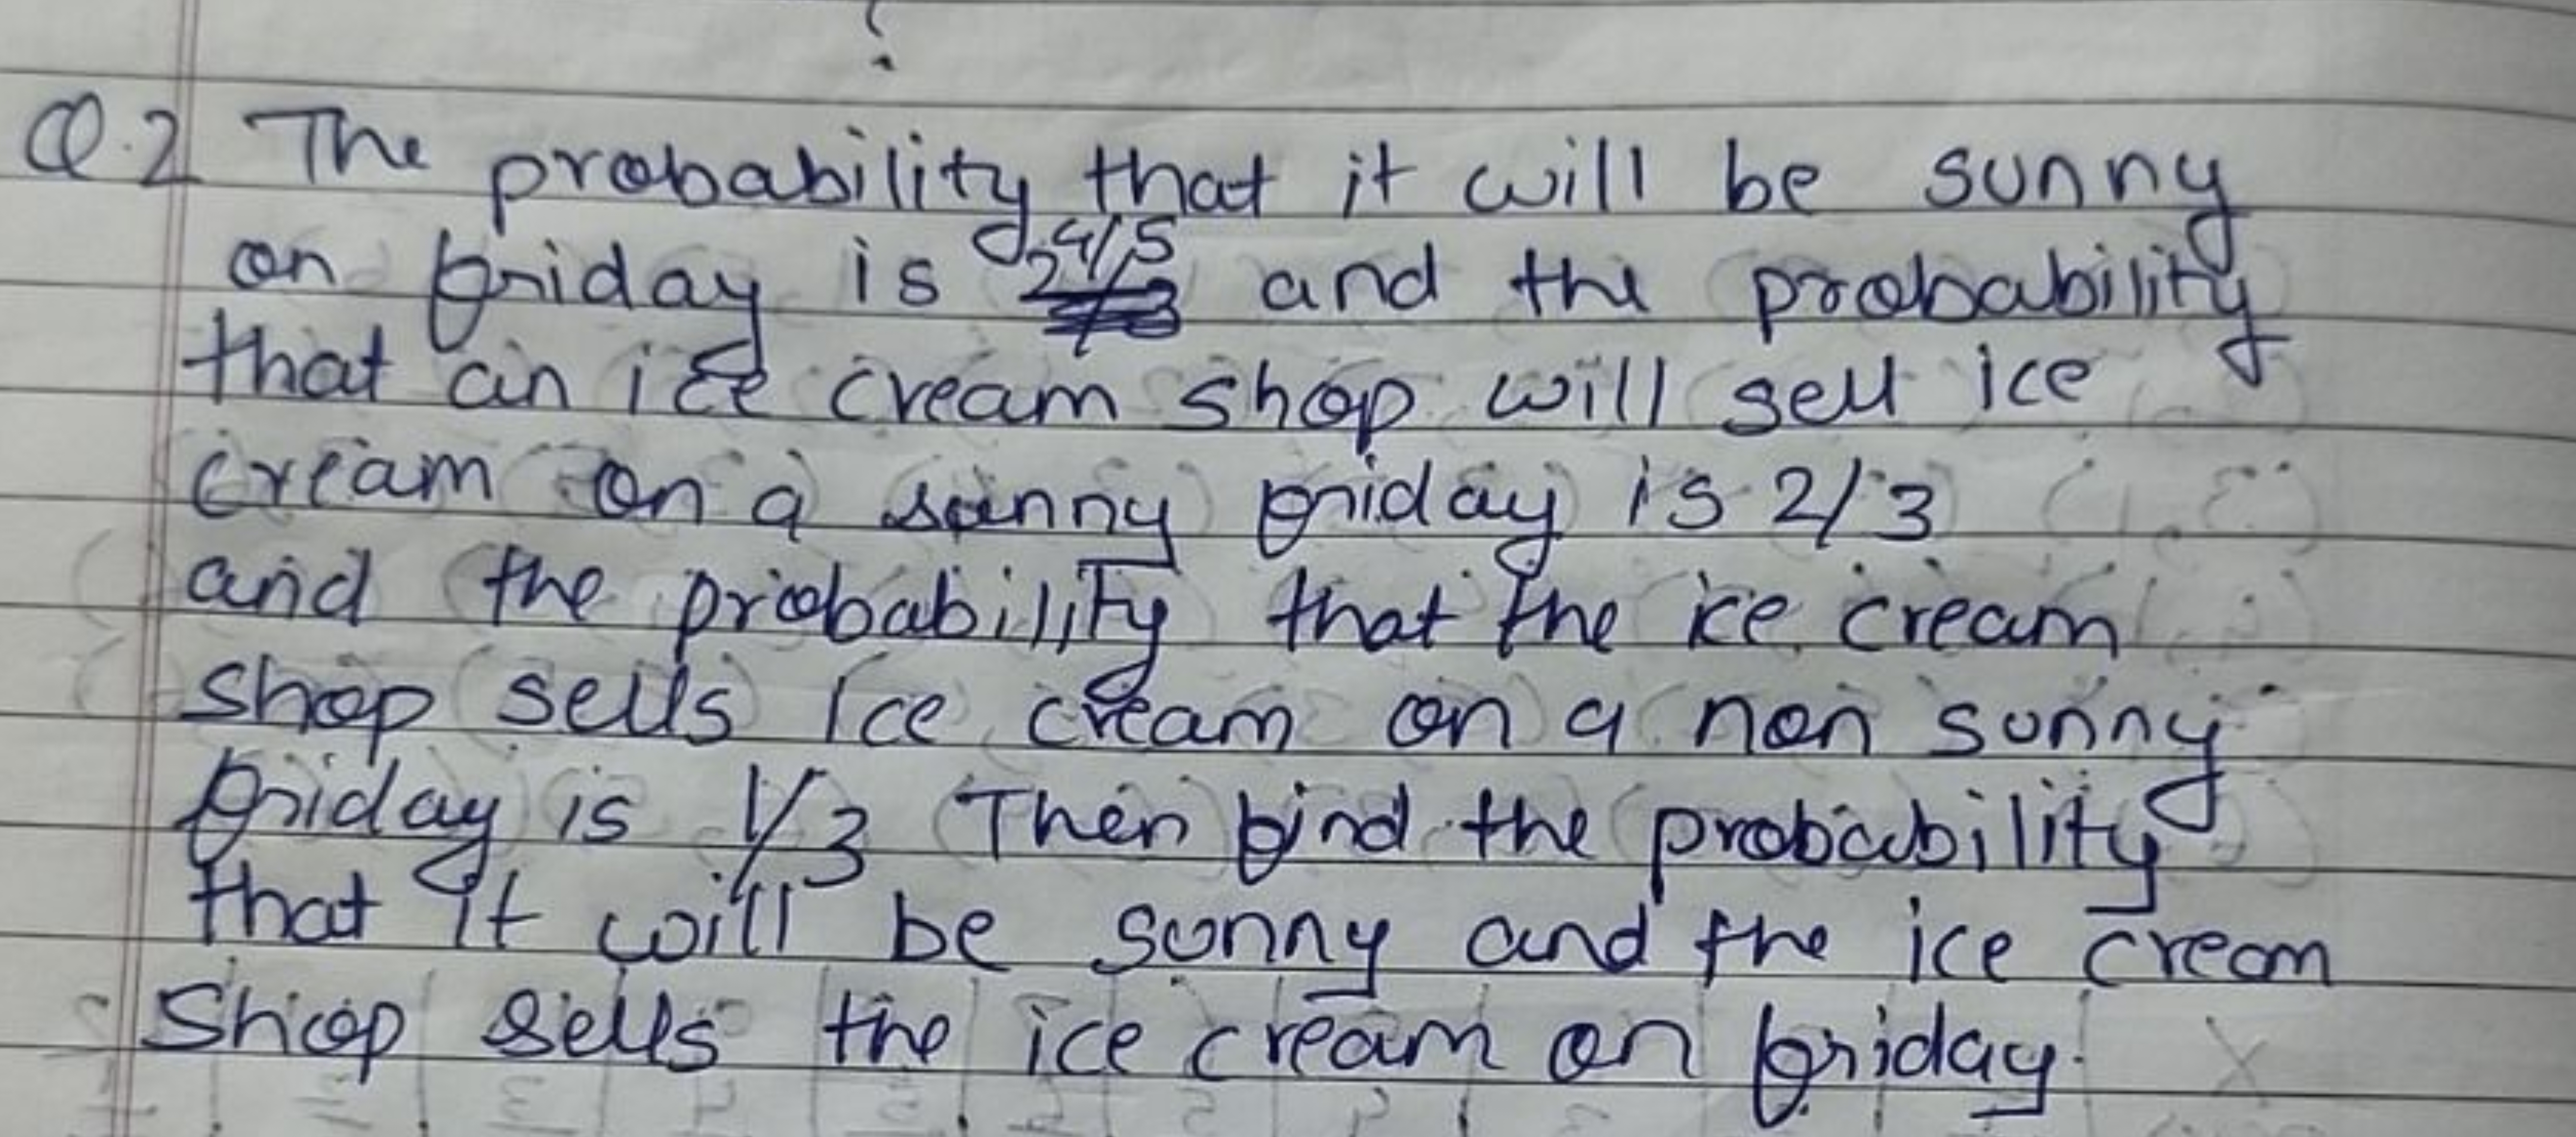 Q.2 The probability that it will be sunny
on friday is 4/5 and the probability
that an ice cream shop will sell ice
cream on a sunny friday is 2/3
and the probability that the ice cream
shop sells ice cream on a non sunny
friday is 1/3 Then find the probability
that it will be sunny and the ice cream
Shop sells the ice cream on friday.